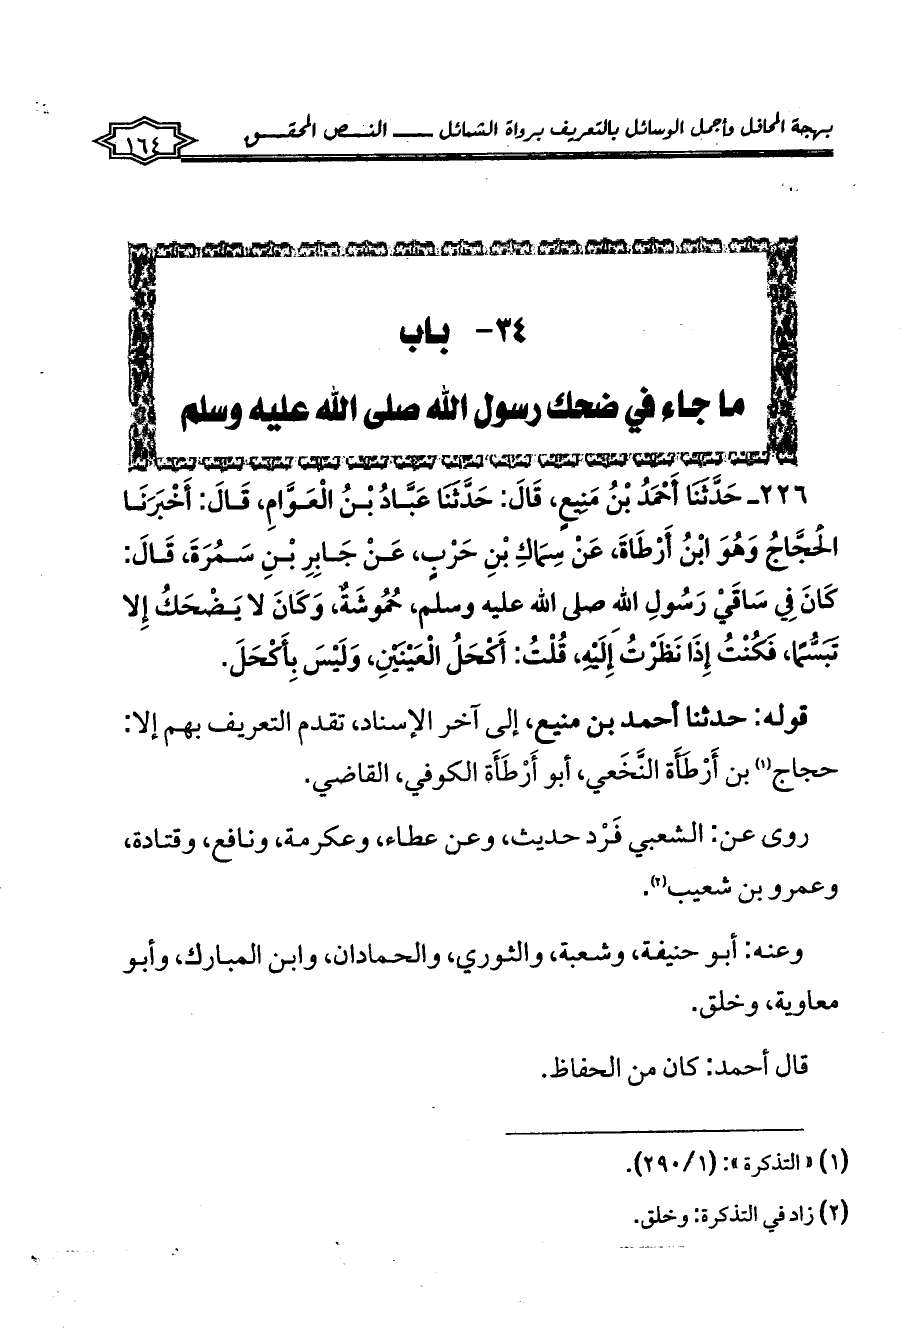 بهجة المحافل وأجمل الوسائل بالتعريف برواة الشمائل ــــ النـص المحقـق
١٦٤
٣٤- باب
ما جاء في ضحك رسول الله صلى الله عليه وسلم
٢٢٦ـ حَدَّثَنَا أَحْمَدُ بْنُ مَنِيعٍ، قَالَ: حَدَّثَنَا عَبَّادُ بْنُ الْعَوَّامِ، قَالَ: أَخْبَرَنَا
الْحَجَّاجُ وَهُوَ ابْنُ أَرْطَاةَ، عَنْ سِمَاكِ بْنِ حَرْبٍ، عَنْ جَابِرِ بْنِ سَمُرَةَ، قَالَ:
كَانَ فِي سَاقَيْ رَسُولِ الله صلى الله عليه وسلم، حُمُوشَةٌ، وَكَانَ لا يَضْحَكُ إِلا
تَبَسُّمًا، فَكُنْتُ إِذَا نَظَرْتُ إِلَيْهِ، قُلْتُ: أَكْحَلُ الْعَيْنَيْنِ، وَلَيْسَ بِأَكْحَلَ.
قوله: حدثنا أحمد بن منيع، إلى آخر الإسناد، تقدم التعريف بهم إلا:
حجاج(١) بن أَرْطَأَة النَّخَعي، أبو أَرْطَأَة الكوفي، القاضي.
روى عن: الشعبي فَرْد حديث، وعن عطاء، وعكرمة، ونافع، وقتادة،
وعمرو بن شعيب(٢).
وعنه: أبو حنيفة، وشعبة، والثوري، والحمادان، وابن المبارك، وأبو
معاوية، وخلق.
قال أحمد: كان من الحفاظ.
(١) «التذكرة»: (١/ ٢٩٠).
(٢) زاد في التذكرة: وخلق.